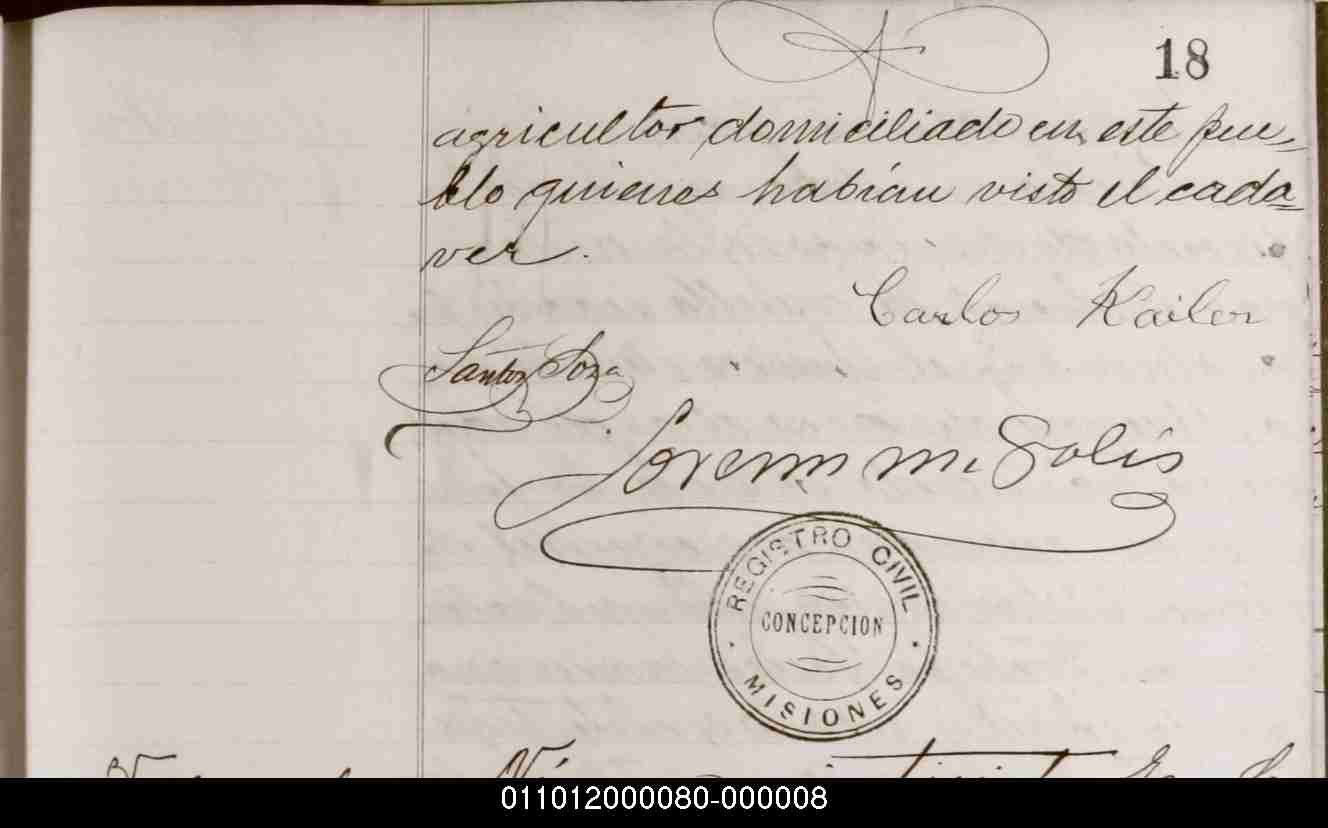 18
agricultor domiciliado en este pue-
blo quienes habían visto el cada=
ver.
Carlos Kailer
Santos Soza
Lorenzo M. Solis
REGISTRO CIVIL
CONCEPCION
MISIONES
011012000080-000008